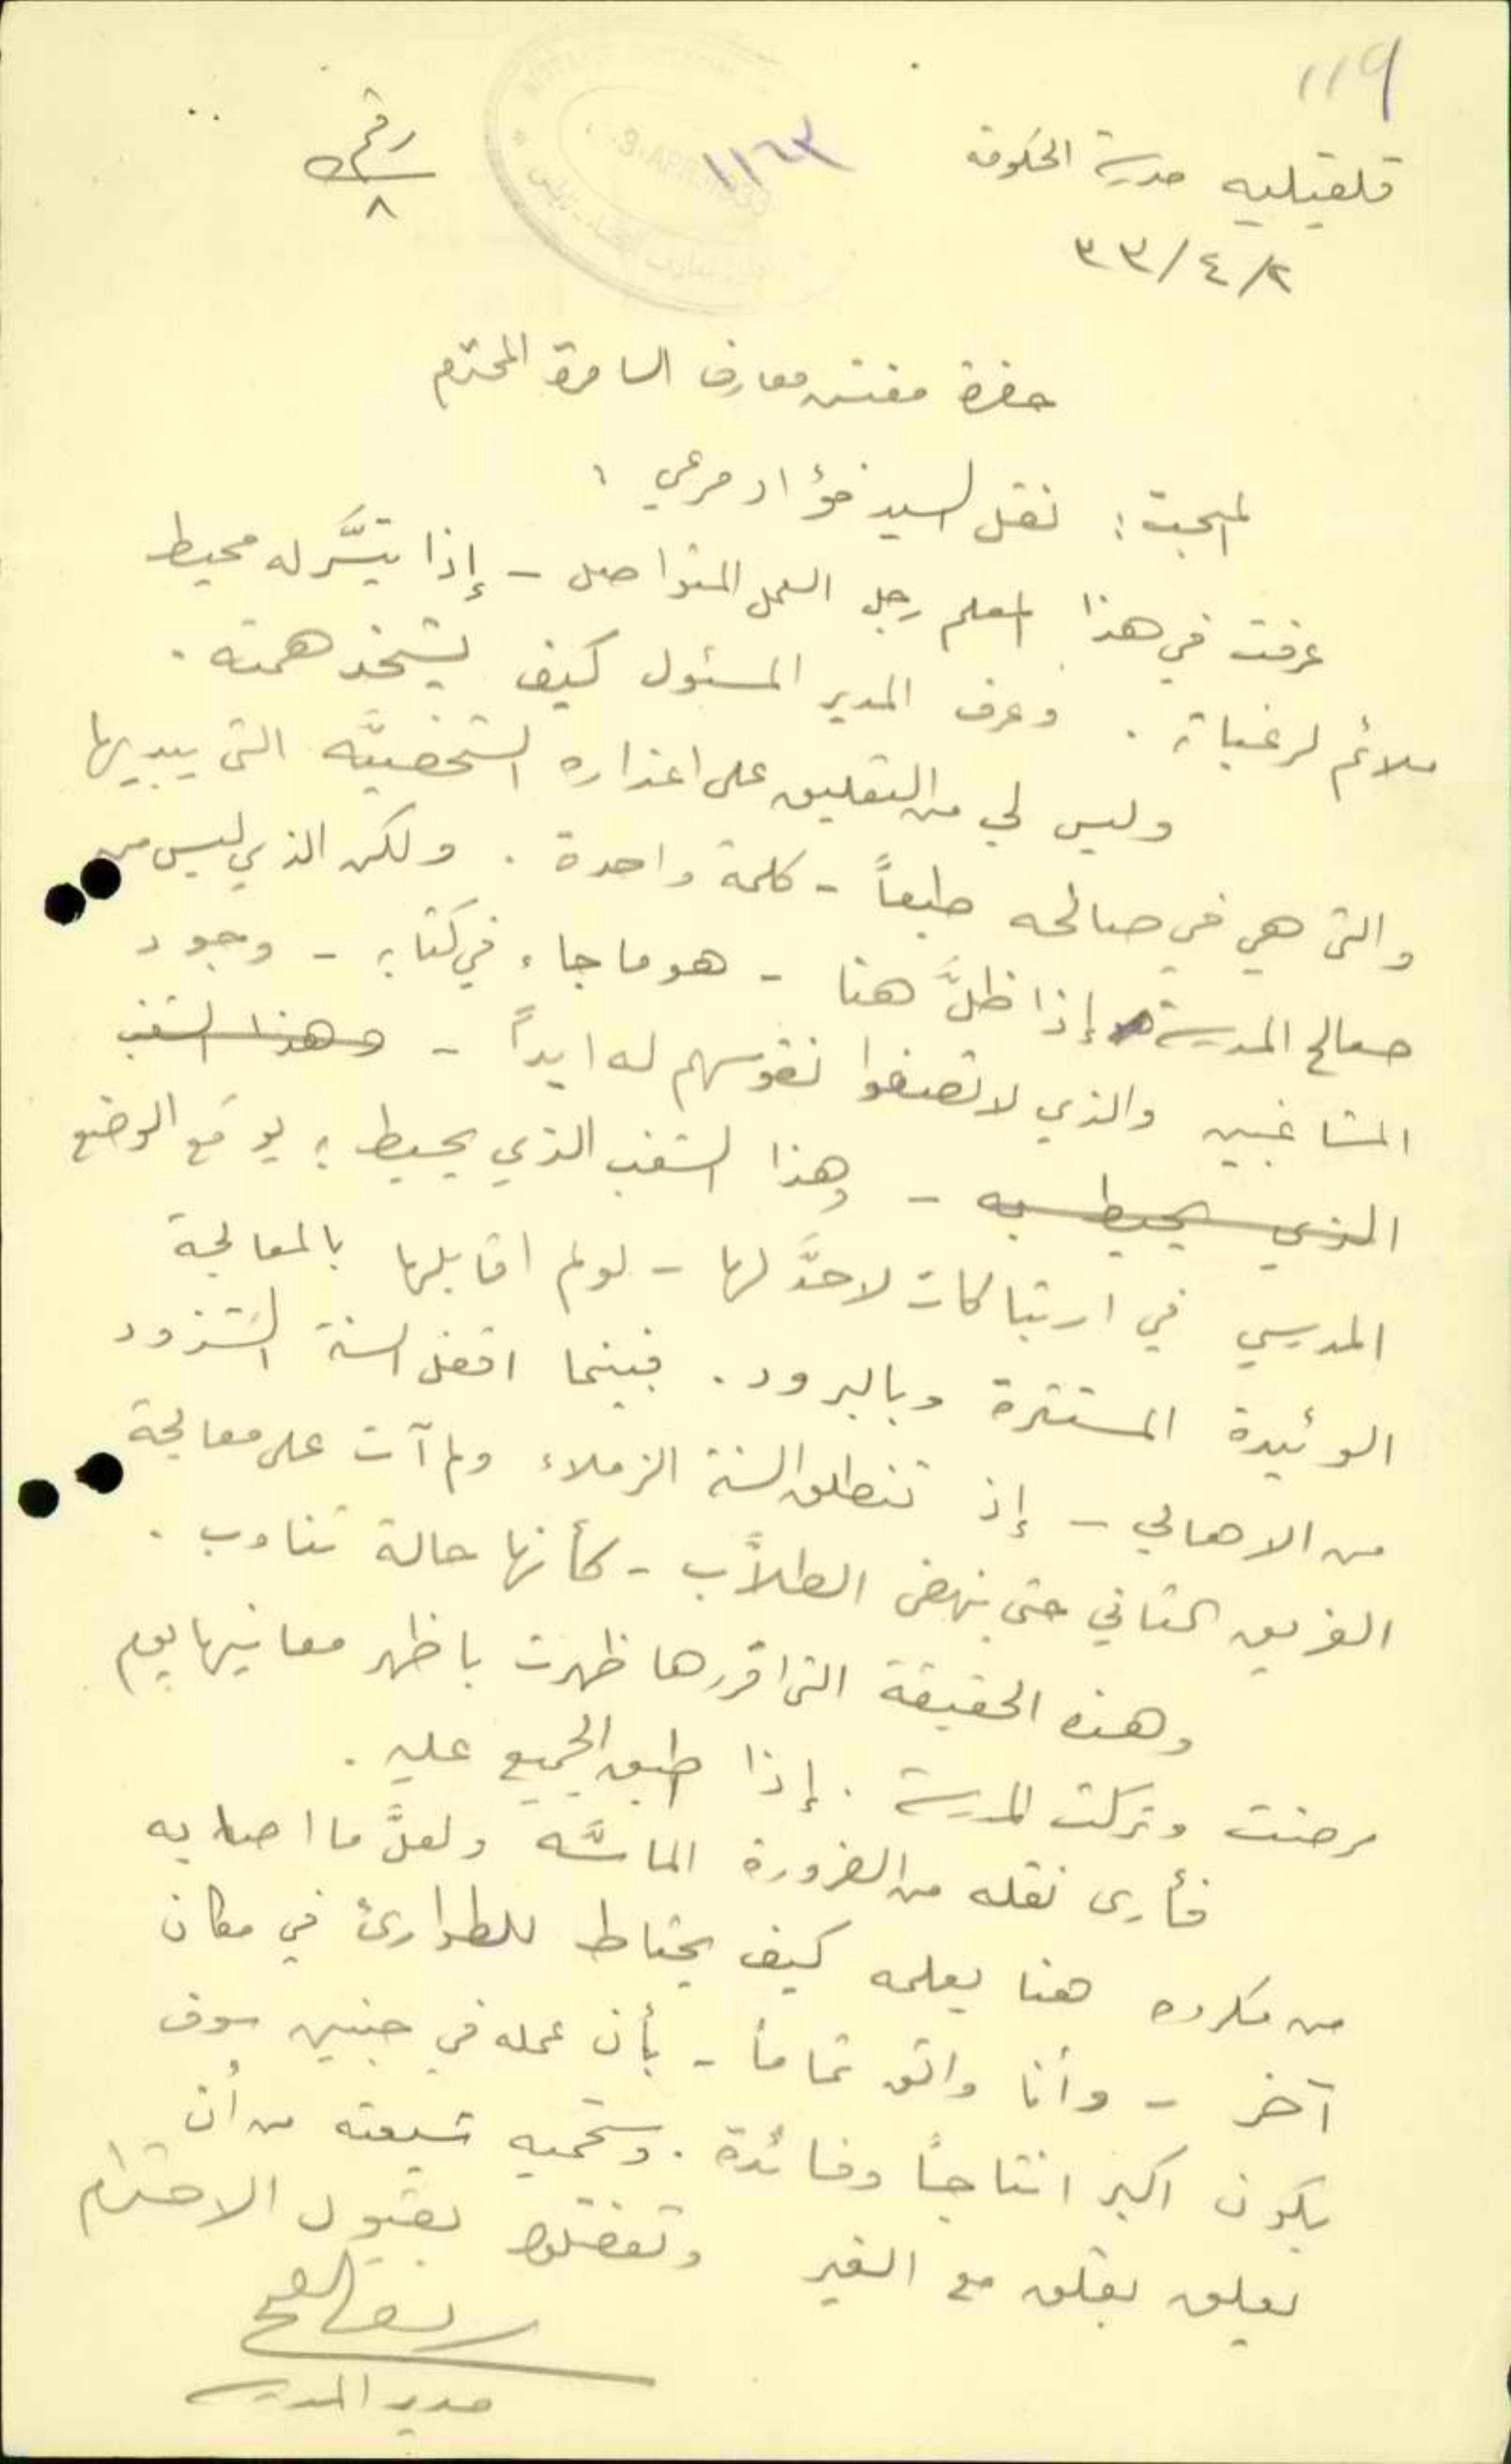 119
قلقيليه مدرسة الحكومة
رقم
٨
١١٦٣
3 APR 1933
٢/٤/٣٣
حضرة مفتش معارف السامرة المحترم
المبحث: نقل السيد فؤاد مرعي :
عرفت في هذا المعلم رجل العمل المتواصل - إذا تيسَّر له محيط
ملائم لرغباته . وعرف المدير المسئول كيف يشحذ همته .
وليس لي من التعليق على اعذاره الشخصيَّه التي يبديها
والتي هي في صالحه طبعاً - كلمة واحدة . ولكن الذي ليس من
صالح المدرسة إذا ظلَّ هنا - هو ما جاء في كتابه - وجود
المشاغبين والذي لا تصفوا نفوسهم له ابداً - وهذا الشغب
الذي يحيط به - وهذا الشغب الذي يحيط به يوقع الوضع
المدرسي في ارتباكات لا حدَّ لها - لو لم اقابلها بالمعالجة
الوئيدة المستترة وبالبرود . فبينما اقفل السنة الشرود
من الاهالي - إذ تنطلق السنة الزملاء ولم آت على معالجة
الفريق الثاني حتى ينهض الطلاَّب - كأنها حالة تناوب .
وهذه الحقيقة التي اقررها ظهرت باظهر معانيها يوم
مرضت وتركت المدرسة . إذا طبق الجميع عليه .
فأرى نقله من الضرورة الماسَّه ولعلَّ ما اصابه
من مكروه هنا يعلمه كيف يحتاط للطوارئ في مكان
آخر - وأنا واثق تماماً - بأن عمله في جنين سوف
يكون اكبر انتاجاً وفائدة . وستحميه من أن
يعلق بقلق مع الغير وتفضلوا بقبول الاحترام
مدير المدرسة